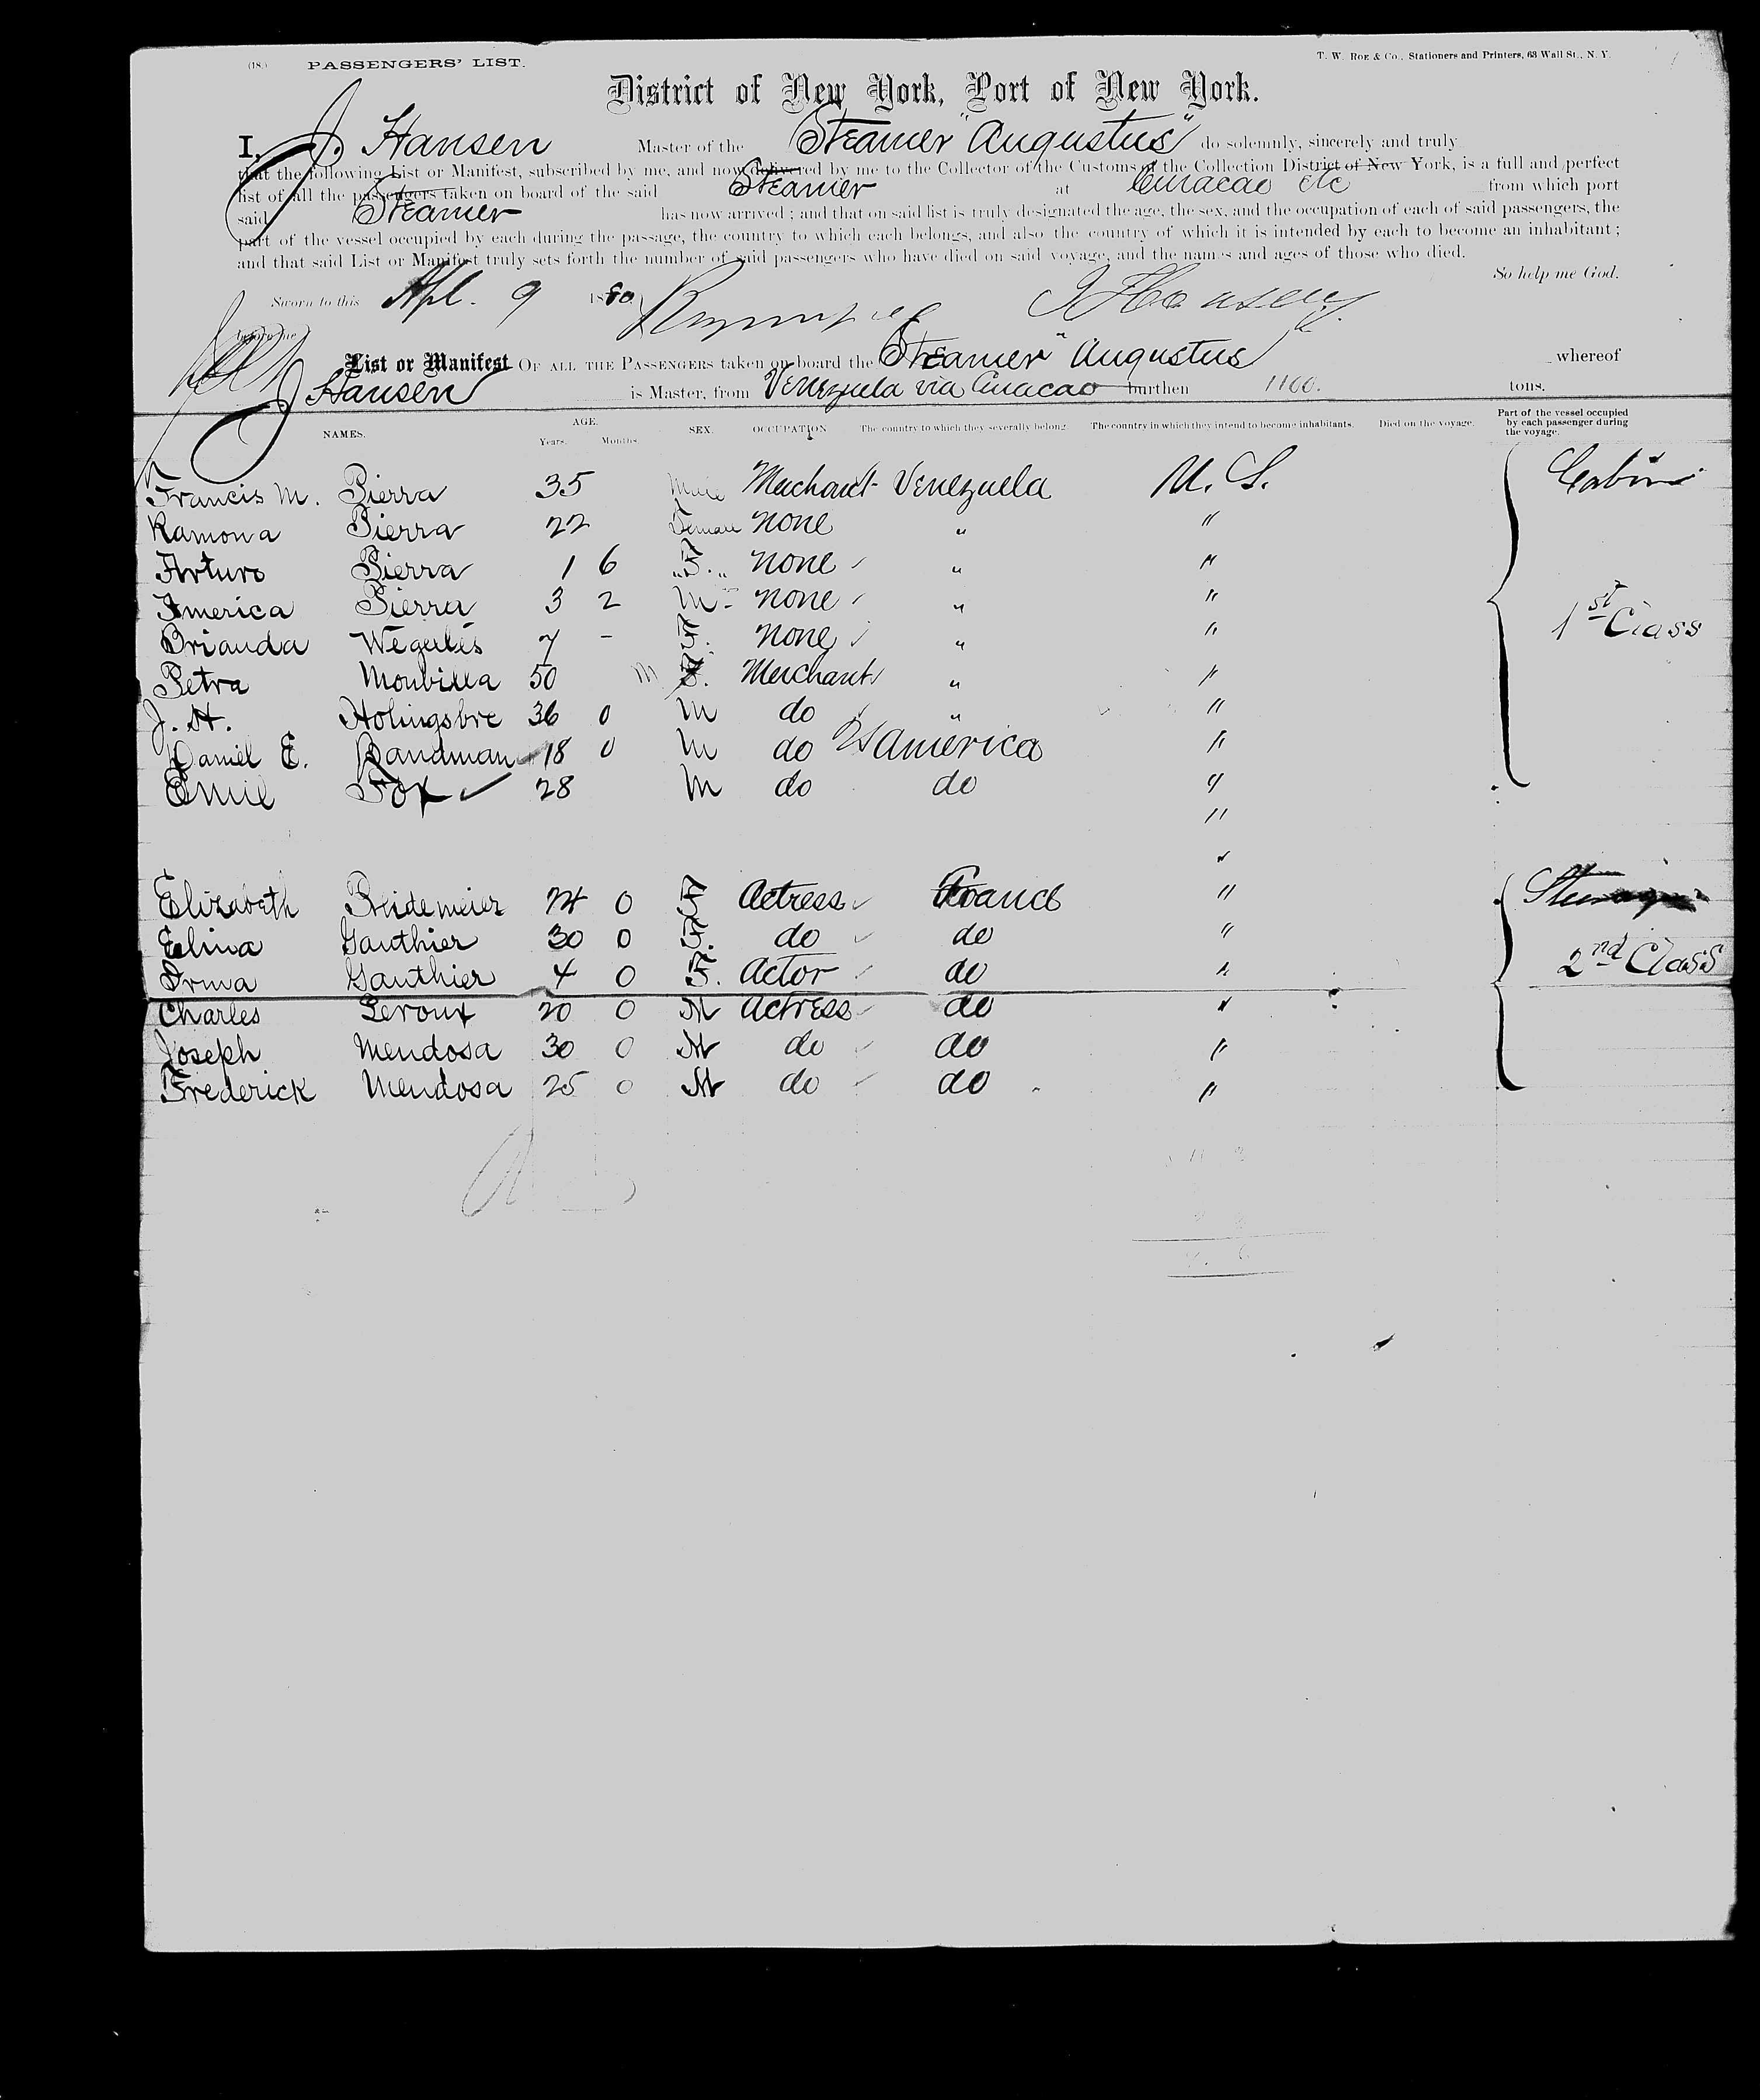 (18.) PASSENGERS' LIST. T. W. ROE & CO., Stationers and Printers, 63 Wall St., N. Y.
District of New York, Port of New York.
I, J. Hansen Master of the Steamer "Augustus" do solemnly, sincerely and truly
that the following List or Manifest, subscribed by me, and now delivered by me to the Collector of the Customs of the Collection District of New York, is a full and perfect
list of all the passengers taken on board of the said Steamer at Curacao etc from which port
said Steamer has now arrived; and that on said list is truly designated the age, the sex, and the occupation of each of said passengers, the
part of the vessel occupied by each during the passage, the country to which each belongs, and also the country of which it is intended by each to become an inhabitant;
and that said List or Manifest truly sets forth the number of said passengers who have died on said voyage, and the names and ages of those who died.
So help me God.
Sworn to this Apl. 9 1880 J Hansen
before me
List or Manifest OF ALL THE PASSENGERS taken on board the Steamer "Augustus" whereof
J Hansen is Master, from Venezuela via Curacao burthen 1100. tons.
NAMES. AGE. Years. Months. SEX. OCCUPATION The country to which they severally belong. The country in which they intend to become inhabitants. Died on the voyage. Part of the vessel occupied by each passenger during the voyage.
Francis M. Pierra 35 Male Merchant Venezuela U. S. Cabin
Ramona Pierra 22 Female none " "
Arturo Pierra 1 6 "F." none " "
America Pierra 3 2 M none " "
1st Class
Brianda Wegeles 7 - F. none " "
Petra 50 M F. Merchant " "
J. H. Holingsbre 36 0 M do " "
Daniel E. Bandman 18 0 M do US America "
Emil Fox 28 M do do "
"
"
Elizabeth Breidemeier 24 0 F Actress France "
Elina Gauthier 30 0 F. do do "
2nd Class
Irma Gauthier 4 0 F. Actor do "
Charles Leroux 20 0 M Actress do "
Joseph Mendosa 30 0 M do do "
Frederick Mendosa 25 0 M do do "